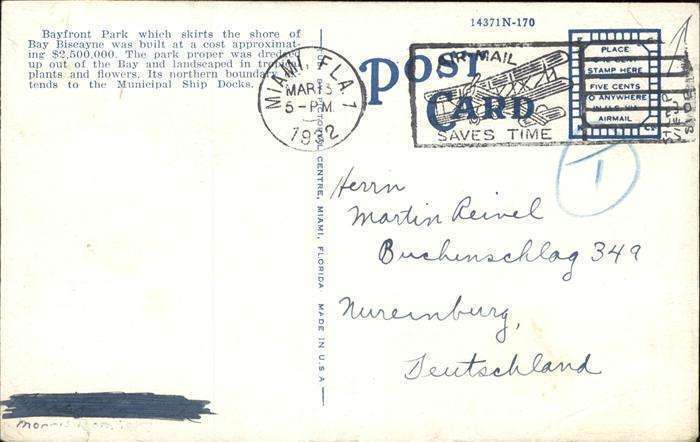 Bayfront Park which skirts the shore of
Bay Biscayne was built at a cost approximat-
ing $2,500,000. The park proper was dredged
up out of the Bay and landscaped in tropical
plants and flowers. Its northern boundary
tends to the Municipal Ship Docks.
MIAMI, FLA. 1
MAR 13
5 - PM
1932
14371N-170
POST
CARD
AIR MAIL
SAVES TIME
PLACE
STAMP HERE
FIVE CENTS
TO ANYWHERE
IN U.S.
AIRMAIL
T
CENTRE, MIAMI, FLORIDA MADE IN U.S.A.
Herrn
Martin Reivel
Buchenschlag 349
Nuremburg,
Deutschland